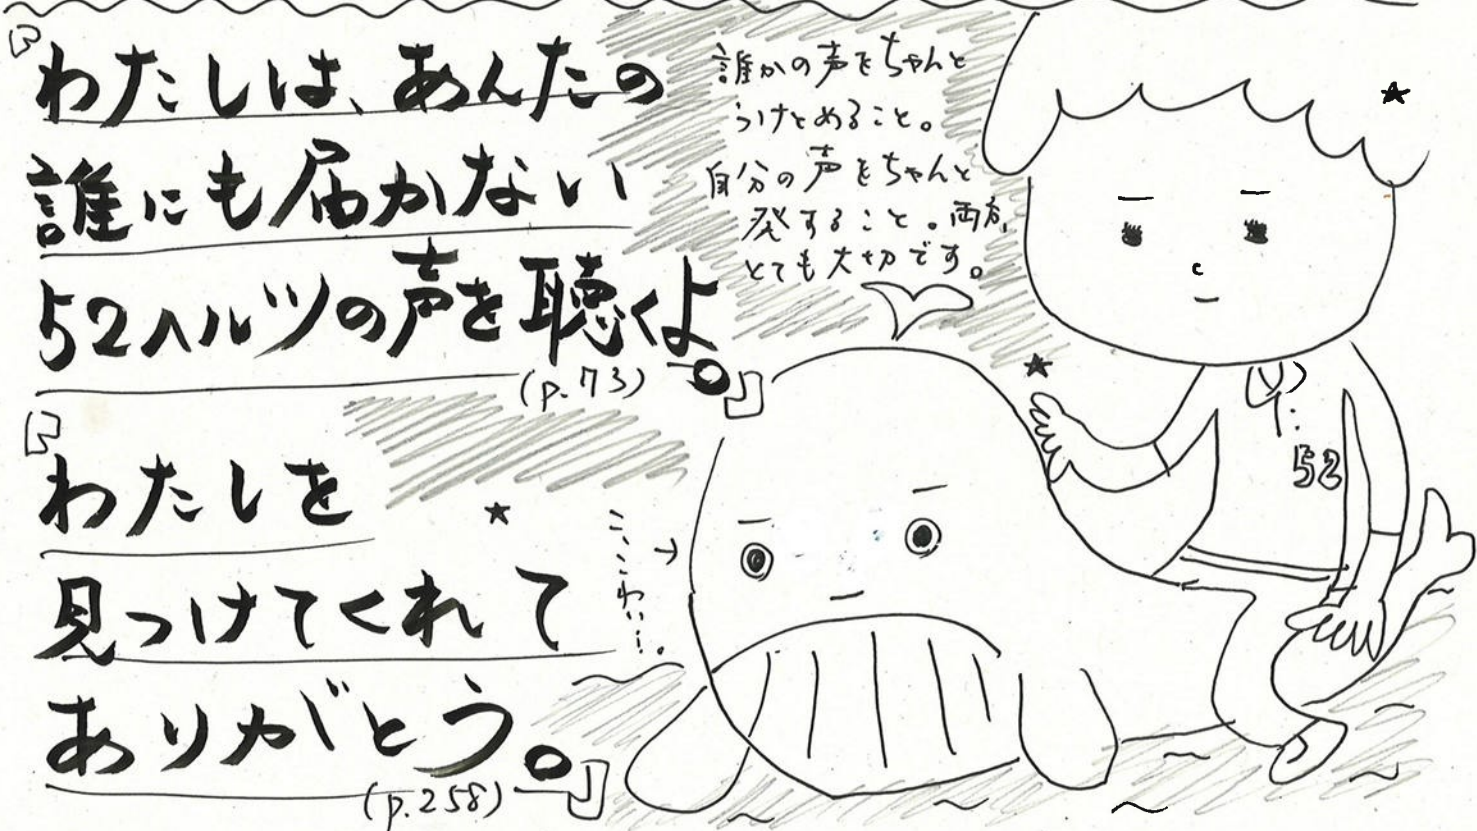 『わたしは、あんたの
誰にも届かない
52ヘルツの声を聴くよ。』
(p.73)
『わたしを
見つけてくれて
ありがとう。』
(p.258)
誰かの声をちゃんと
うけとめること。
自分の声をちゃんと
発すること。両方、
とても大切です。
こ、こわい…。
→
52